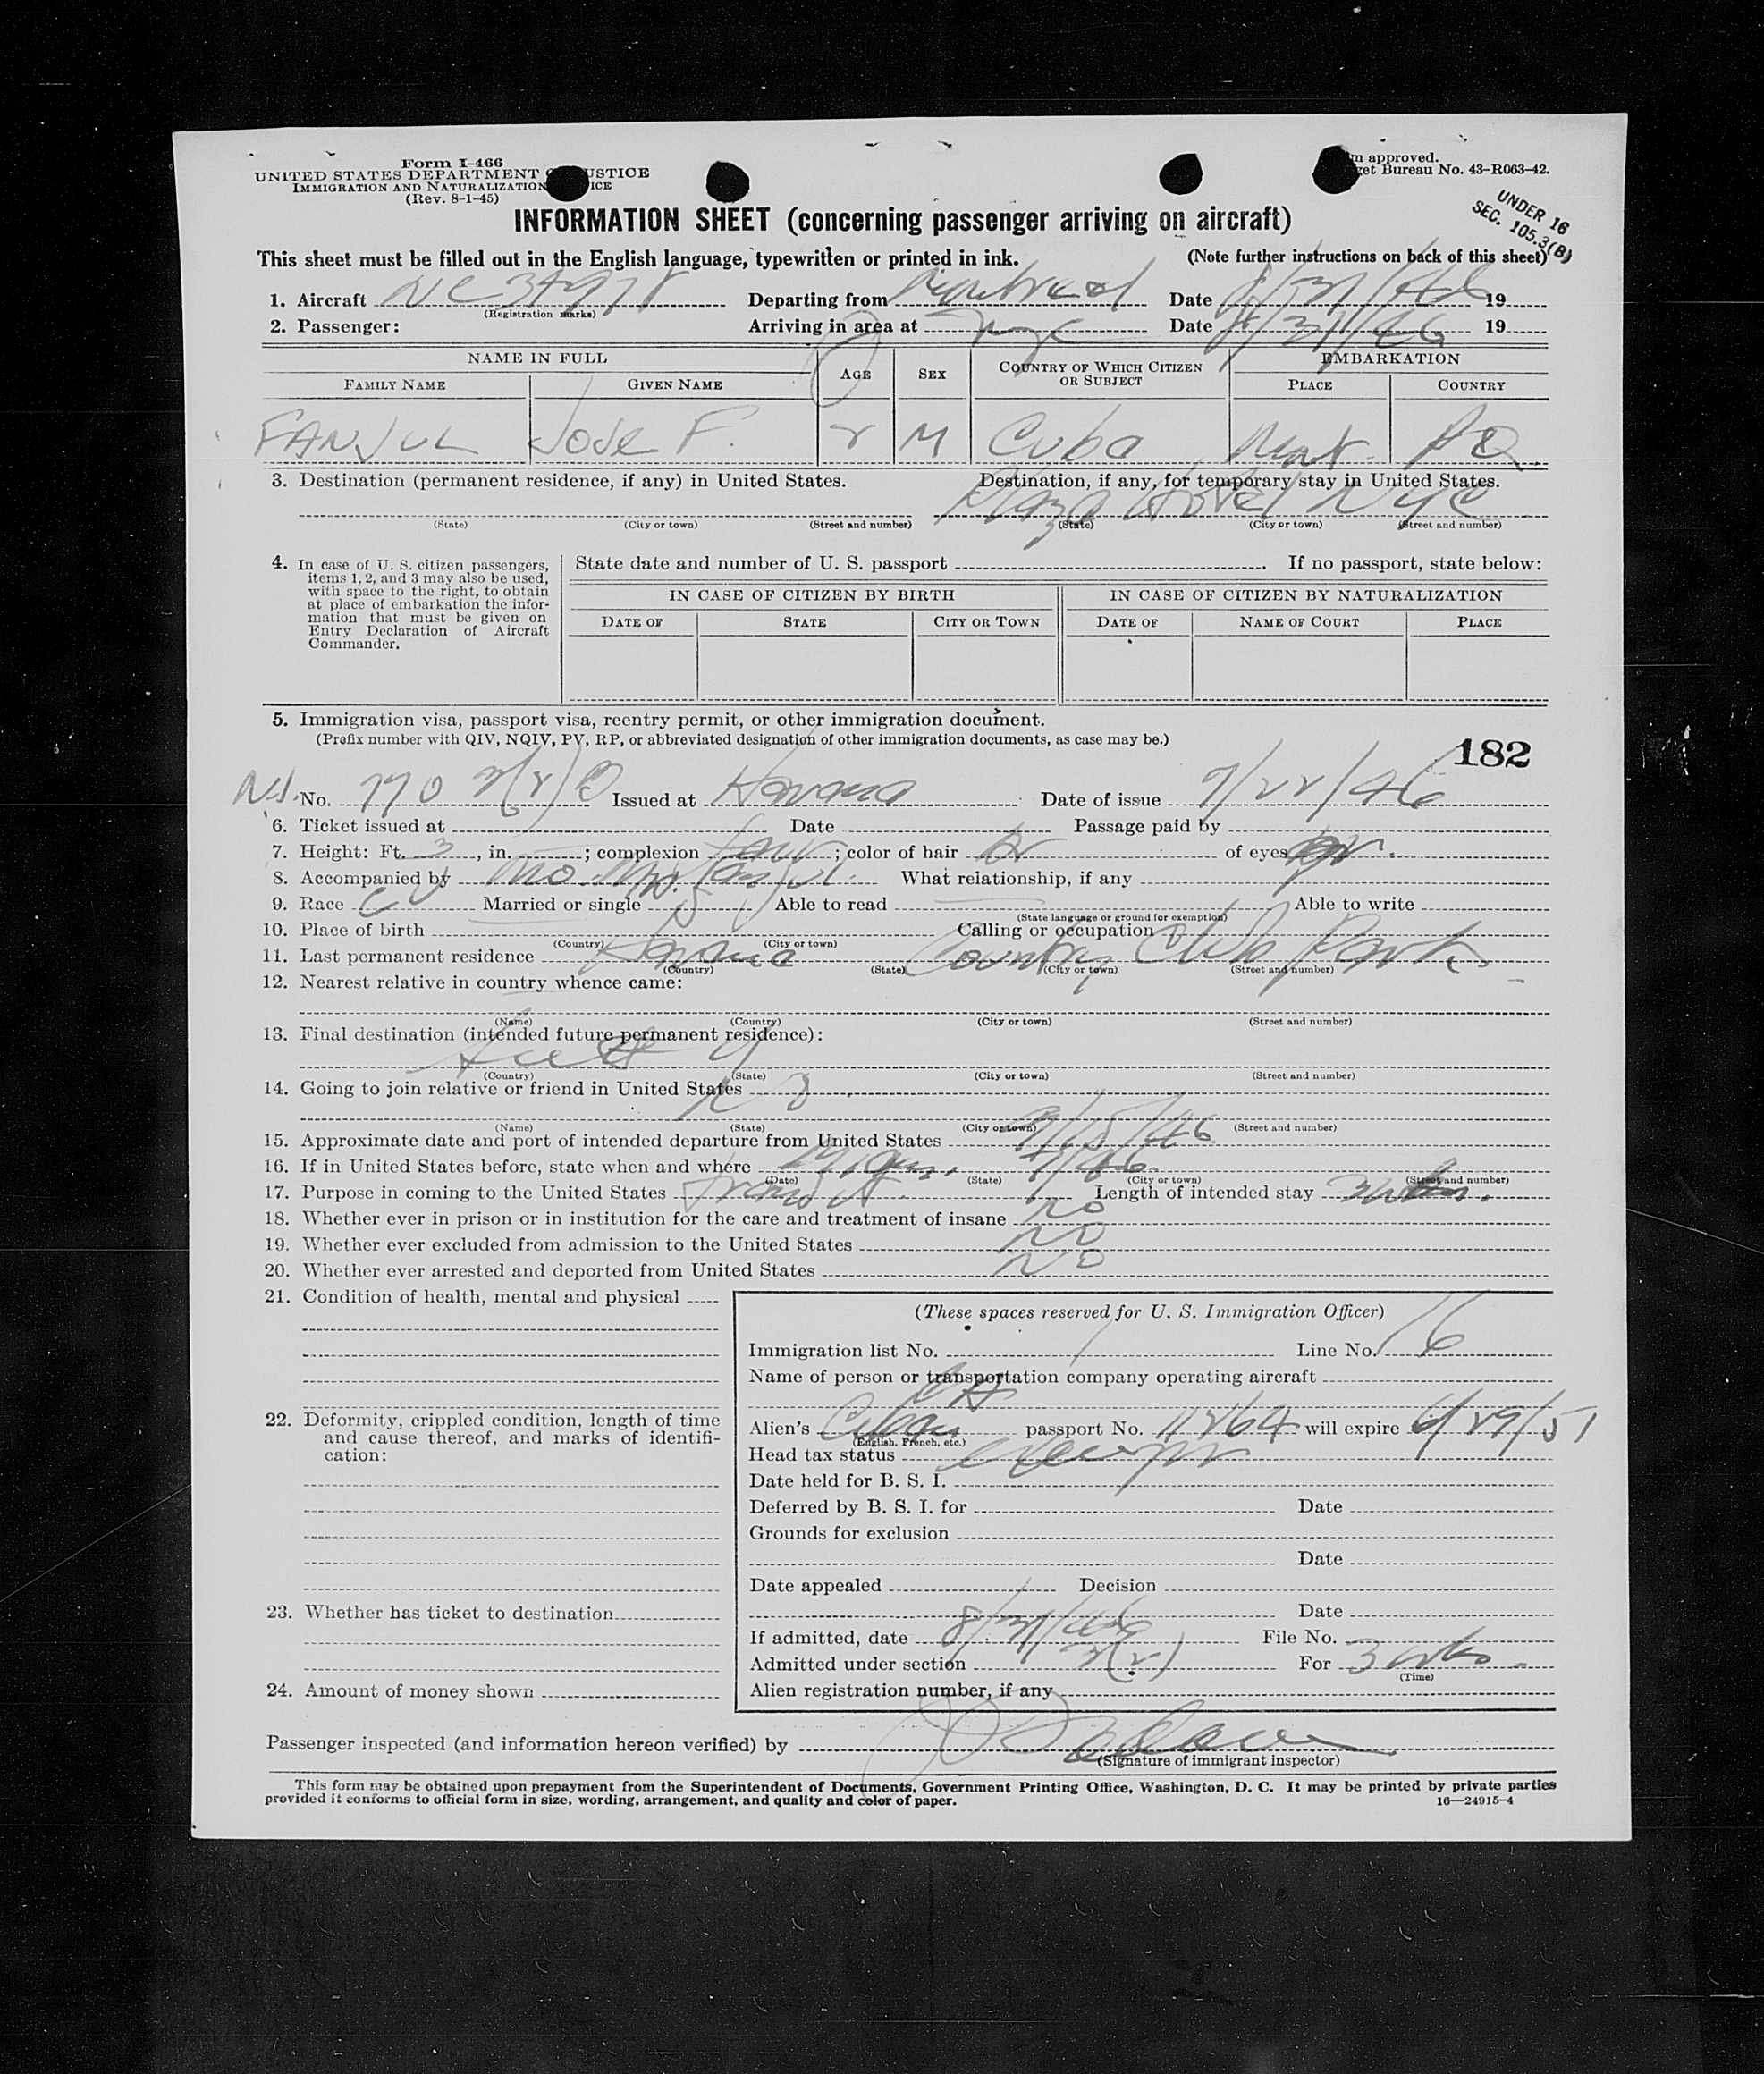 Form I-466
UNITED STATES DEPARTMENT USTICE
IMMIGRATION AND NATURALIZATION ICE
(Rev. 8-1-45)
m approved.
get Bureau No. 43-R063-42.
UNDER 16
SEC. 105.3(B)
INFORMATION SHEET (concerning passenger arriving on aircraft)
This sheet must be filled out in the English language, typewritten or printed in ink. (Note further instructions on back of this sheet)
1. Aircraft Departing from Montreal Date 8/31/46 19
(Registration marks)
2. Passenger: Arriving in area at NYC Date 8/31/46 19
NAME IN FULL AGE SEX COUNTRY OF WHICH CITIZEN OR SUBJECT EMBARKATION
FAMILY NAME GIVEN NAME PLACE COUNTRY
FANJUL Jose F. 2 M Cuba Mont. PQ
3. Destination (permanent residence, if any) in United States. Destination, if any, for temporary stay in United States.
Plaza Hotel NYC
(State) (City or town) (Street and number) (State) (City or town) (Street and number)
4. In case of U. S. citizen passengers, items 1, 2, and 3 may also be used, with space to the right, to obtain at place of embarkation the information that must be given on Entry Declaration of Aircraft Commander.
State date and number of U. S. passport . If no passport, state below:
IN CASE OF CITIZEN BY BIRTH IN CASE OF CITIZEN BY NATURALIZATION
DATE OF STATE CITY OR TOWN DATE OF NAME OF COURT PLACE
5. Immigration visa, passport visa, reentry permit, or other immigration document.
(Prefix number with QIV, NQIV, PV, RP, or abbreviated designation of other immigration documents, as case may be.)
182
No. 770 3(2) Issued at Havana Date of issue 7/22/46
6. Ticket issued at Date Passage paid by
7. Height: Ft. 3, in. ; complexion fair; color of hair br of eyes br.
8. Accompanied by Mo. Mrs. Fanjul. What relationship, if any
9. Race CU Married or single S Able to read Able to write
(State language or ground for exemption)
10. Place of birth Calling or occupation
(Country) (City or town)
11. Last permanent residence Havana Country Club Park
(Country) (State) (City or town) (Street and number)
12. Nearest relative in country whence came:
(Name) (Country) (City or town) (Street and number)
13. Final destination (intended future permanent residence):
(Country) (State) (City or town) (Street and number)
14. Going to join relative or friend in United States
(Name) (State) (City or town) (Street and number)
15. Approximate date and port of intended departure from United States 9/15/46
16. If in United States before, state when and where Miami 7/46
(Date) (State) (City or town) (Street and number)
17. Purpose in coming to the United States Transit. Length of intended stay 3 wks.
18. Whether ever in prison or in institution for the care and treatment of insane no
19. Whether ever excluded from admission to the United States no
20. Whether ever arrested and deported from United States no
21. Condition of health, mental and physical
22. Deformity, crippled condition, length of time and cause thereof, and marks of identification:
23. Whether has ticket to destination
24. Amount of money shown
(These spaces reserved for U. S. Immigration Officer)
Immigration list No. 1 Line No. 16
Name of person or transportation company operating aircraft
Alien's Cuban passport No. 11264 will expire 6/29/51
(English, French, etc.)
Head tax status exempt
Date held for B. S. I.
Deferred by B. S. I. for Date
Grounds for exclusion
Date
Date appealed Decision
Date
If admitted, date 8/31/46 File No.
Admitted under section 3(2) For 3 wks.
(Time)
Alien registration number, if any
Passenger inspected (and information hereon verified) by
(Signature of immigrant inspector)
This form may be obtained upon prepayment from the Superintendent of Documents, Government Printing Office, Washington, D. C. It may be printed by private parties
provided it conforms to official form in size, wording, arrangement, and quality and color of paper. 16—24915-4